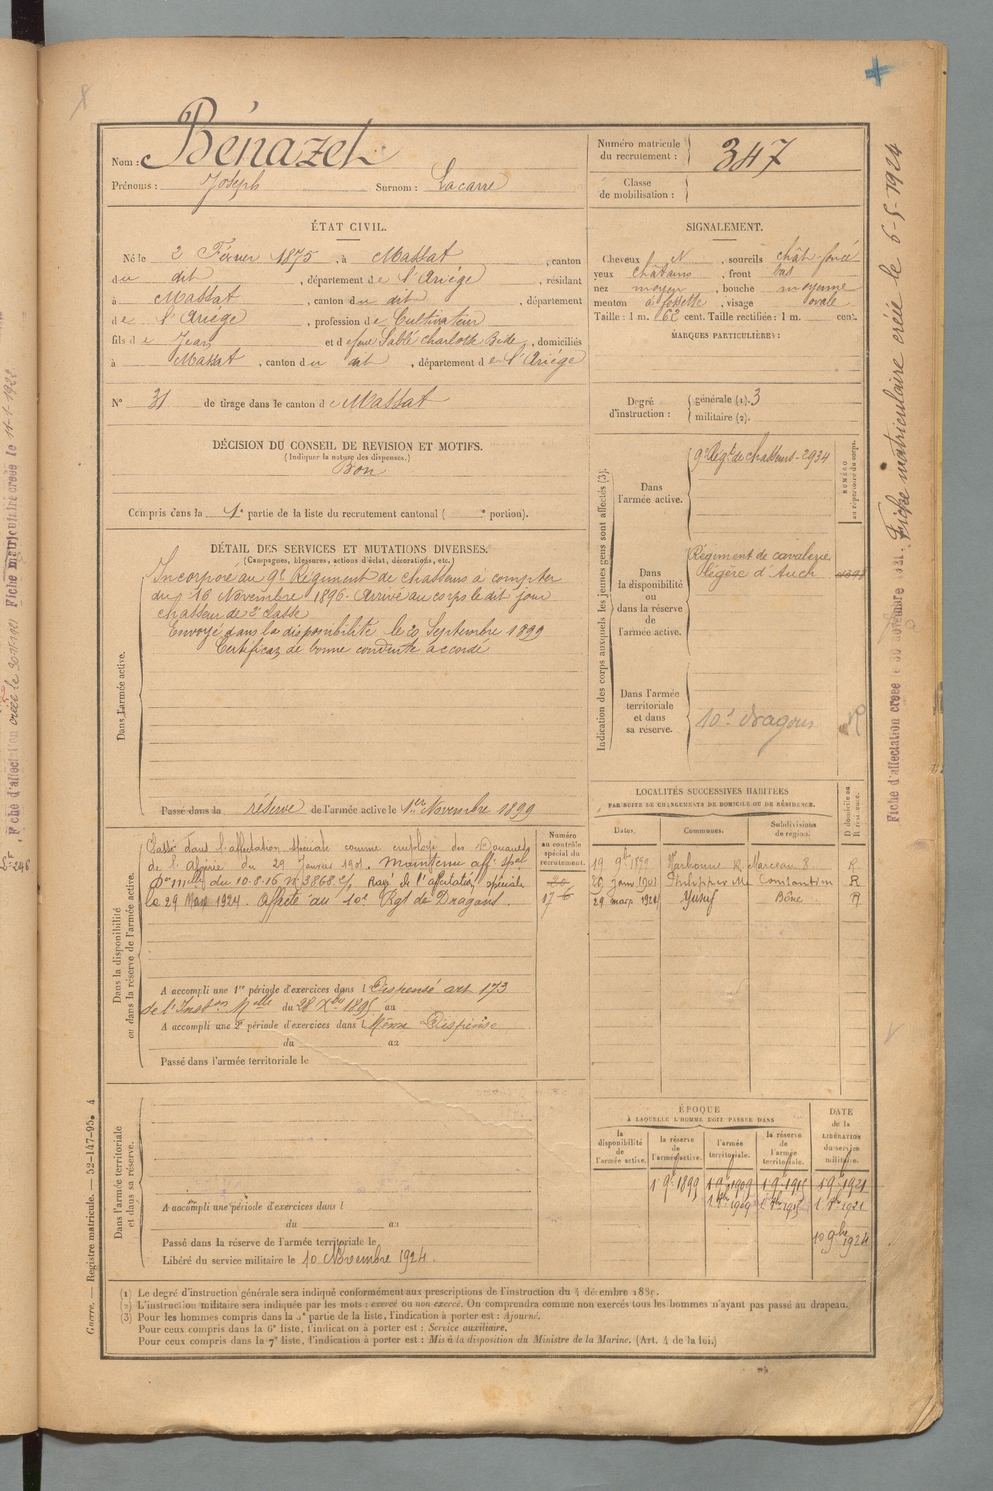 Nom : Bénazet
Prénoms : Joseph Surnom : Lacarre
Numéro matricule du recrutement : 347
Classe de mobilisation :
ÉTAT CIVIL.
Né le 2 Février 1875, à Massat, canton
du dit, département de l'Ariège, résidant
à Massat, canton du dit, département
de l'Ariège, profession de Cultivateur
fils de Jean et de Charlotte, domiciliés
à Massat, canton du dit, département de l'Ariège
N° 31 de tirage dans le canton de Massat
DÉCISION DU CONSEIL DE REVISION ET MOTIFS.
(Indiquer la nature des dispenses.)
Bon
Compris dans la 1e partie de la liste du recrutement cantonal ( e portion).
SIGNALEMENT.
Cheveux N, sourcils chât-foncé
yeux châtains, front bas
nez moyen, bouche moyenne
menton à fossette, visage ovale
Taille : 1 m. 62 cent. Taille rectifiée : 1 m. cent.
MARQUES PARTICULIÈRES :
Degré d'instruction :
générale (1). 3
militaire (2).
DÉTAIL DES SERVICES ET MUTATIONS DIVERSES.
(Campagnes, blessures, actions d'éclat, décorations, etc.)
Dans l'armée active.
Incorporé au 9e Régiment de chasseurs à compter
du 16 Novembre 1896. Arrivé au corps le dit jour
chasseur de 2e classe
Envoyé dans la disponibilité le 20 Septembre 1899
Certificat de bonne conduite accordé
Passé dans la réserve de l'armée active le 1er Novembre 1899
Indication des corps auxquels les jeunes gens sont affectés (3).
NUMÉRO au répertoire du corps.
Dans l'armée active.
9e Régt de chasseurs - 2934
Dans la disponibilité ou dans la réserve de l'armée active.
Régiment de cavalerie
légère d'Auch
Dans l'armée territoriale et dans sa réserve.
10e dragons
Dans la disponibilité ou dans la réserve de l'armée active.
Classé dans l'affectation spéciale comme employé des Douanes
de l'Algérie du 29 Janvier 1901. Maintenu aff. spéc
du 10.8.16 N° 3868, Rayé de l'affectation spéciale
le 29 Mars 1924. Affecté au 10e Rgt de Dragons.
Numéro au contrôle spécial du recrutement.
A accompli une 1re période d'exercices dans l Dispensé art 173
de l'Inston Melle du 28 Xbre 1895 au
A accompli une 2e période d'exercices dans l Même Dispense
du au
Passé dans l'armée territoriale le
LOCALITÉS SUCCESSIVES HABITÉES
PAR SUITE DE CHANGEMENTS DE DOMICILE OU DE RÉSIDENCE.
Dates. Communes. Subdivisions de région. D domicile ou R résidence.
19 9bre 1899 Narbonne R. Marceau 8 R
29 janv 1901 Philippeville Constantine R
29 mars 1921 Yusuf Bône R
Dans l'armée territoriale et dans sa réserve.
A accompli une période d'exercices dans l
du au
Passé dans la réserve de l'armée territoriale le
Libéré du service militaire le 10 Novembre 1924.
ÉPOQUE
À LAQUELLE L'HOMME DOIT PASSER DANS
la disponibilité de l'armée active.
la réserve de l'armée active.
l'armée territoriale.
la réserve de l'armée territoriale.
DATE de la LIBÉRATION du service militaire.
1 9e 1899 1 9e 1909 1 9e 1915 1 9e 1921
1 8bre 1909 1 8bre 1915 1 8bre 1921
10 9bre 1924
(1) Le degré d'instruction générale sera indiqué conformément aux prescriptions de l'instruction du 4 décembre 1889.
(2) L'instruction militaire sera indiquée par les mots : exercé ou non exercé. On comprendra comme non exercés tous les hommes n'ayant pas passé au drapeau.
(3) Pour les hommes compris dans la 5e partie de la liste, l'indication à porter est : Ajourné.
Pour ceux compris dans la 6e liste, l'indication à porter est : Service auxiliaire.
Pour ceux compris dans la 7e liste, l'indication à porter est : Mis à la disposition du Ministre de la Marine. (Art. 4 de la loi.)
Guerre. — Registre matricule. — 52-147-95. 4
Fiche d'affectation créée le 30 novembre 1921. Fiche matriculaire créée le 6-5-1924
Fiche d'affectation créée le 30-11-1921 Fiche matriculaire créée le